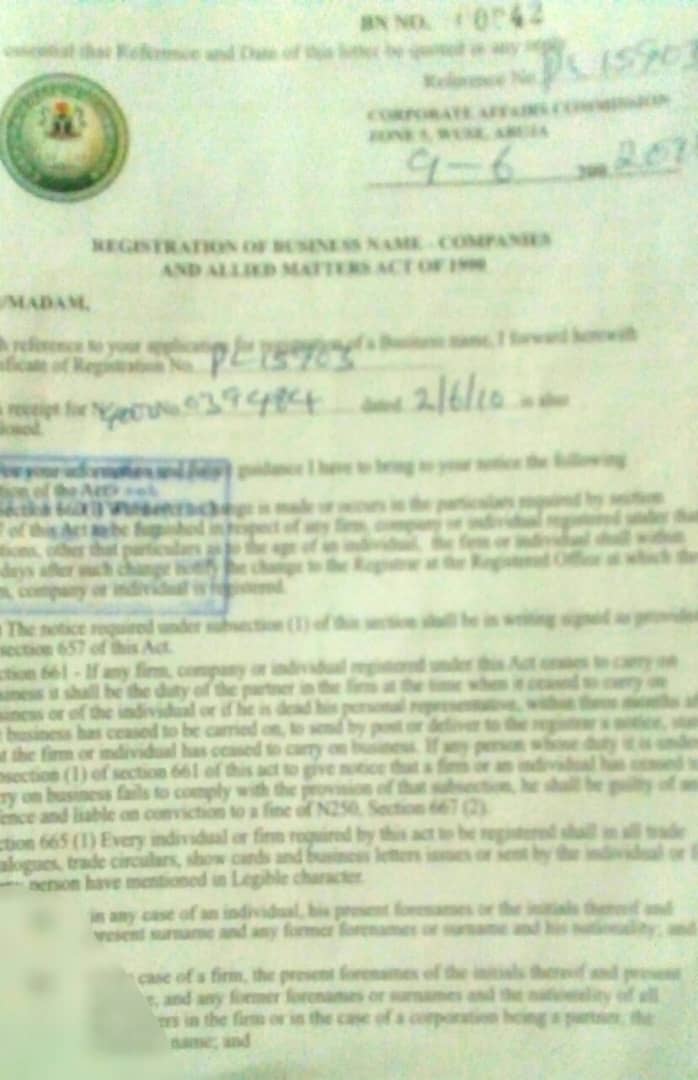 BN NO.
essential that Reference and Date of this letter be quoted in any reply
Reference No. PL 15903
CORPORATE AFFAIRS COMMISSION
ZONE 5, WUSE, ABUJA
9-6
REGISTRATION OF BUSINESS NAME - COMPANIES
AND ALLIED MATTERS ACT OF 1990
/MADAM,
reference to your application for registration of a Business name, I forward herewith
ficate of Registration No. PL 15903
receipt for 0394484 dated 2/6/10 is also
guidance I have to bring to your notice the following
tion of the Act
change is made or occurs in the particulars required by section
of this Act to be furnished in respect of any firm, company or individual registered under the
tions, other that particulars as to the age of an individual, the firm or individual shall within
days after such change notify the change to the Registrar at the Registered Office at which the
company or individual is registered.
The notice required under subsection (1) of this section shall be in writing signed as provided
section 657 of this Act.
ction 661 - If any firm, company or individual registered under this Act ceases to carry on
siness it shall be the duty of the partner in the firm at the time when it ceased to carry on
siness or of the individual or if he is dead his personal representative, within three months
business has ceased to be carried on, to send by post or deliver to the registrar a notice,
t the firm or individual has ceased to carry on business. If any person whose duty it is under
bsection (1) of section 661 of this act to give notice that a firm or an individual has ceased
ry on business fails to comply with the provision of that subsection, he shall be guilty of an
ence and liable on conviction to a fine of N250, Section 667 (2).
ction 665 (1) Every individual or firm required by this act to be registered shall in all trade
alogues, trade circulars, show cards and business letters issues or sent by the individual or
person have mentioned in Legible character.
in any case of an individual, his present forenames or the initials thereof and
present surname and any former forenames or surname and his nationality; and
case of a firm, the present forenames of the initials thereof and present
and any former forenames or surnames and the nationality of all
ers in the firm or in the case of a corporation being a partner, the
name; and